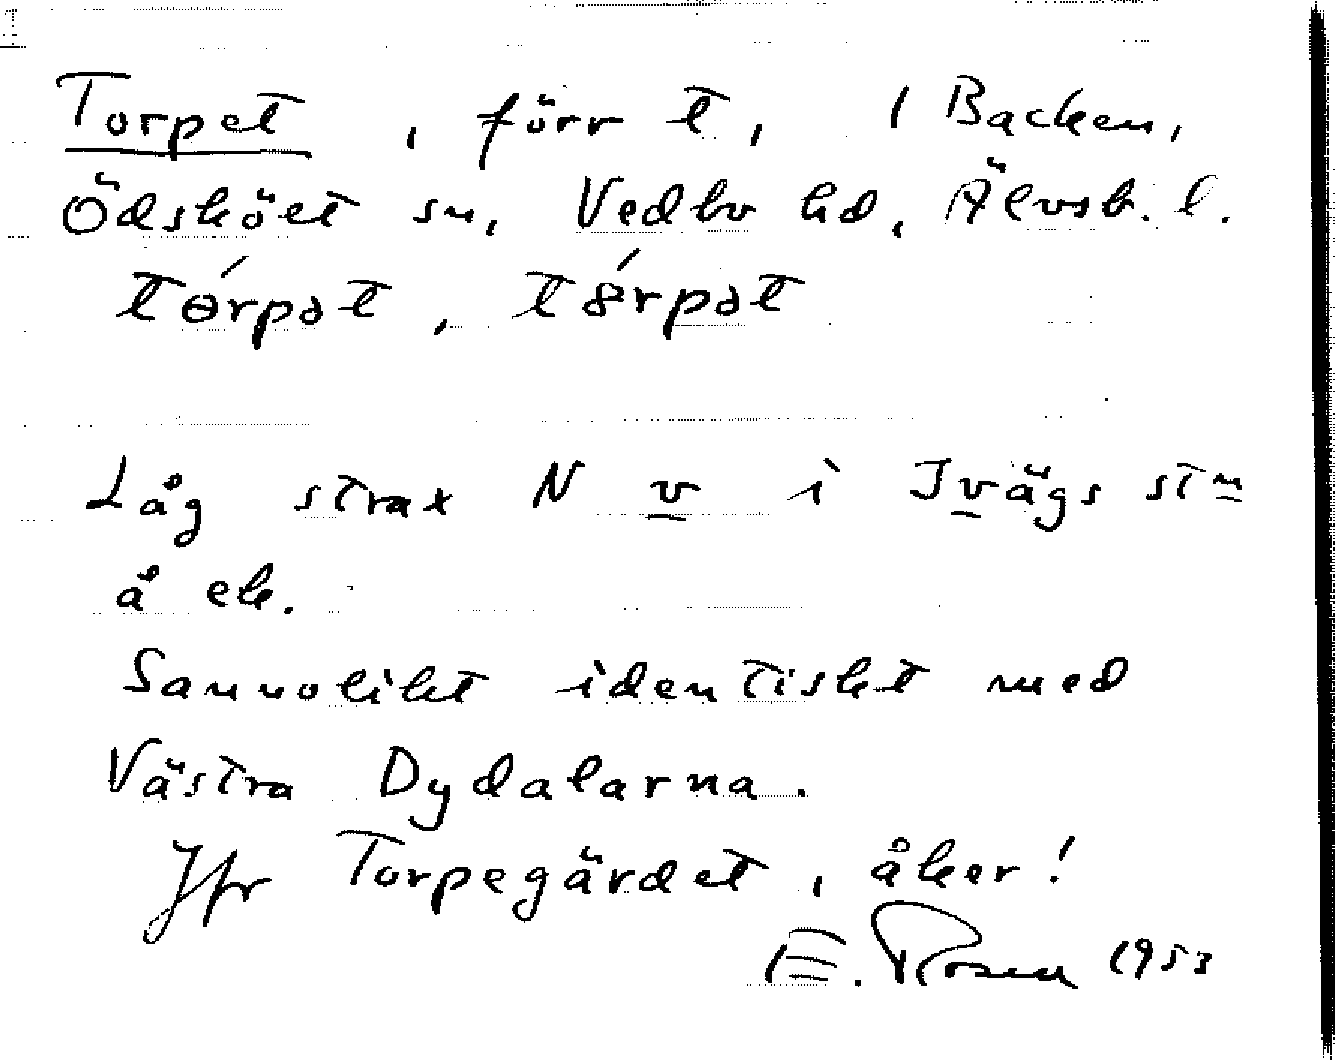 Torpet, förr t, 1 Backen,
Ödsköët sn, Vedbo hd, Älvsb. l.
tɵ́rpət, tȣ́rpət
Låg strax N v i Ivägs stu
å ek.
Sannolikt identiskt med
Västra Dydalarna.
Jfr Torpegärdet, åker!
E. Rosen 1953